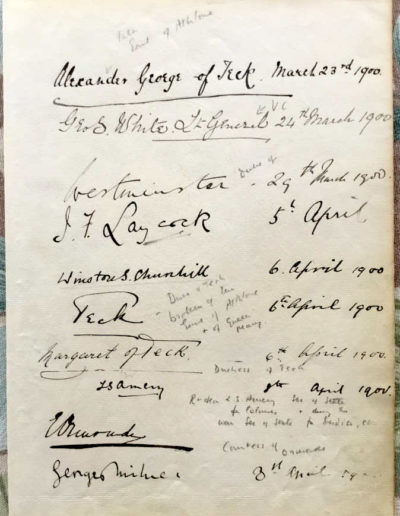 Later
Earl of Athlone
Alexander George of Teck. March 23rd 1900.
Geo S. White Lt General VC 24th March 1900
Westminster Duke of 29th March 1900.
J. F. Laycock 5th April
Winston S. Churchill 6. April 1900
Teck 6th April 1900
Duke of Teck
brother of
Earl of Athlone
& of Queen
Mary
Margaret of Teck. 6th April 1900.
Duchess of Teck
LS Amery April 1900.
L S Amery Sec of State
for Colonies &
war Sec of State for India,
Countess of
George Milne April